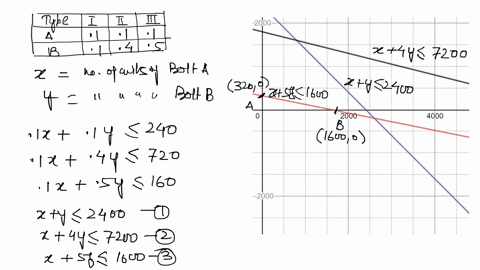 Type I II III
A .1 .1 .1
B .1 .4 .5
x = no. of units of Bolt A
y = " " " " Bolt B
.1x + .1y ≤ 240
.1x + .4y ≤ 720
.1x + .5y ≤ 160
x+y ≤ 2400 — ①
x+4y ≤ 7200 — ②
x + 5y ≤ 1600 — ③
2000
x+4y ≤ 7200
x+y ≤ 2400
(320,0)
x+5y ≤ 1600
A
0 2000 4000
B
(1600,0)
-2000